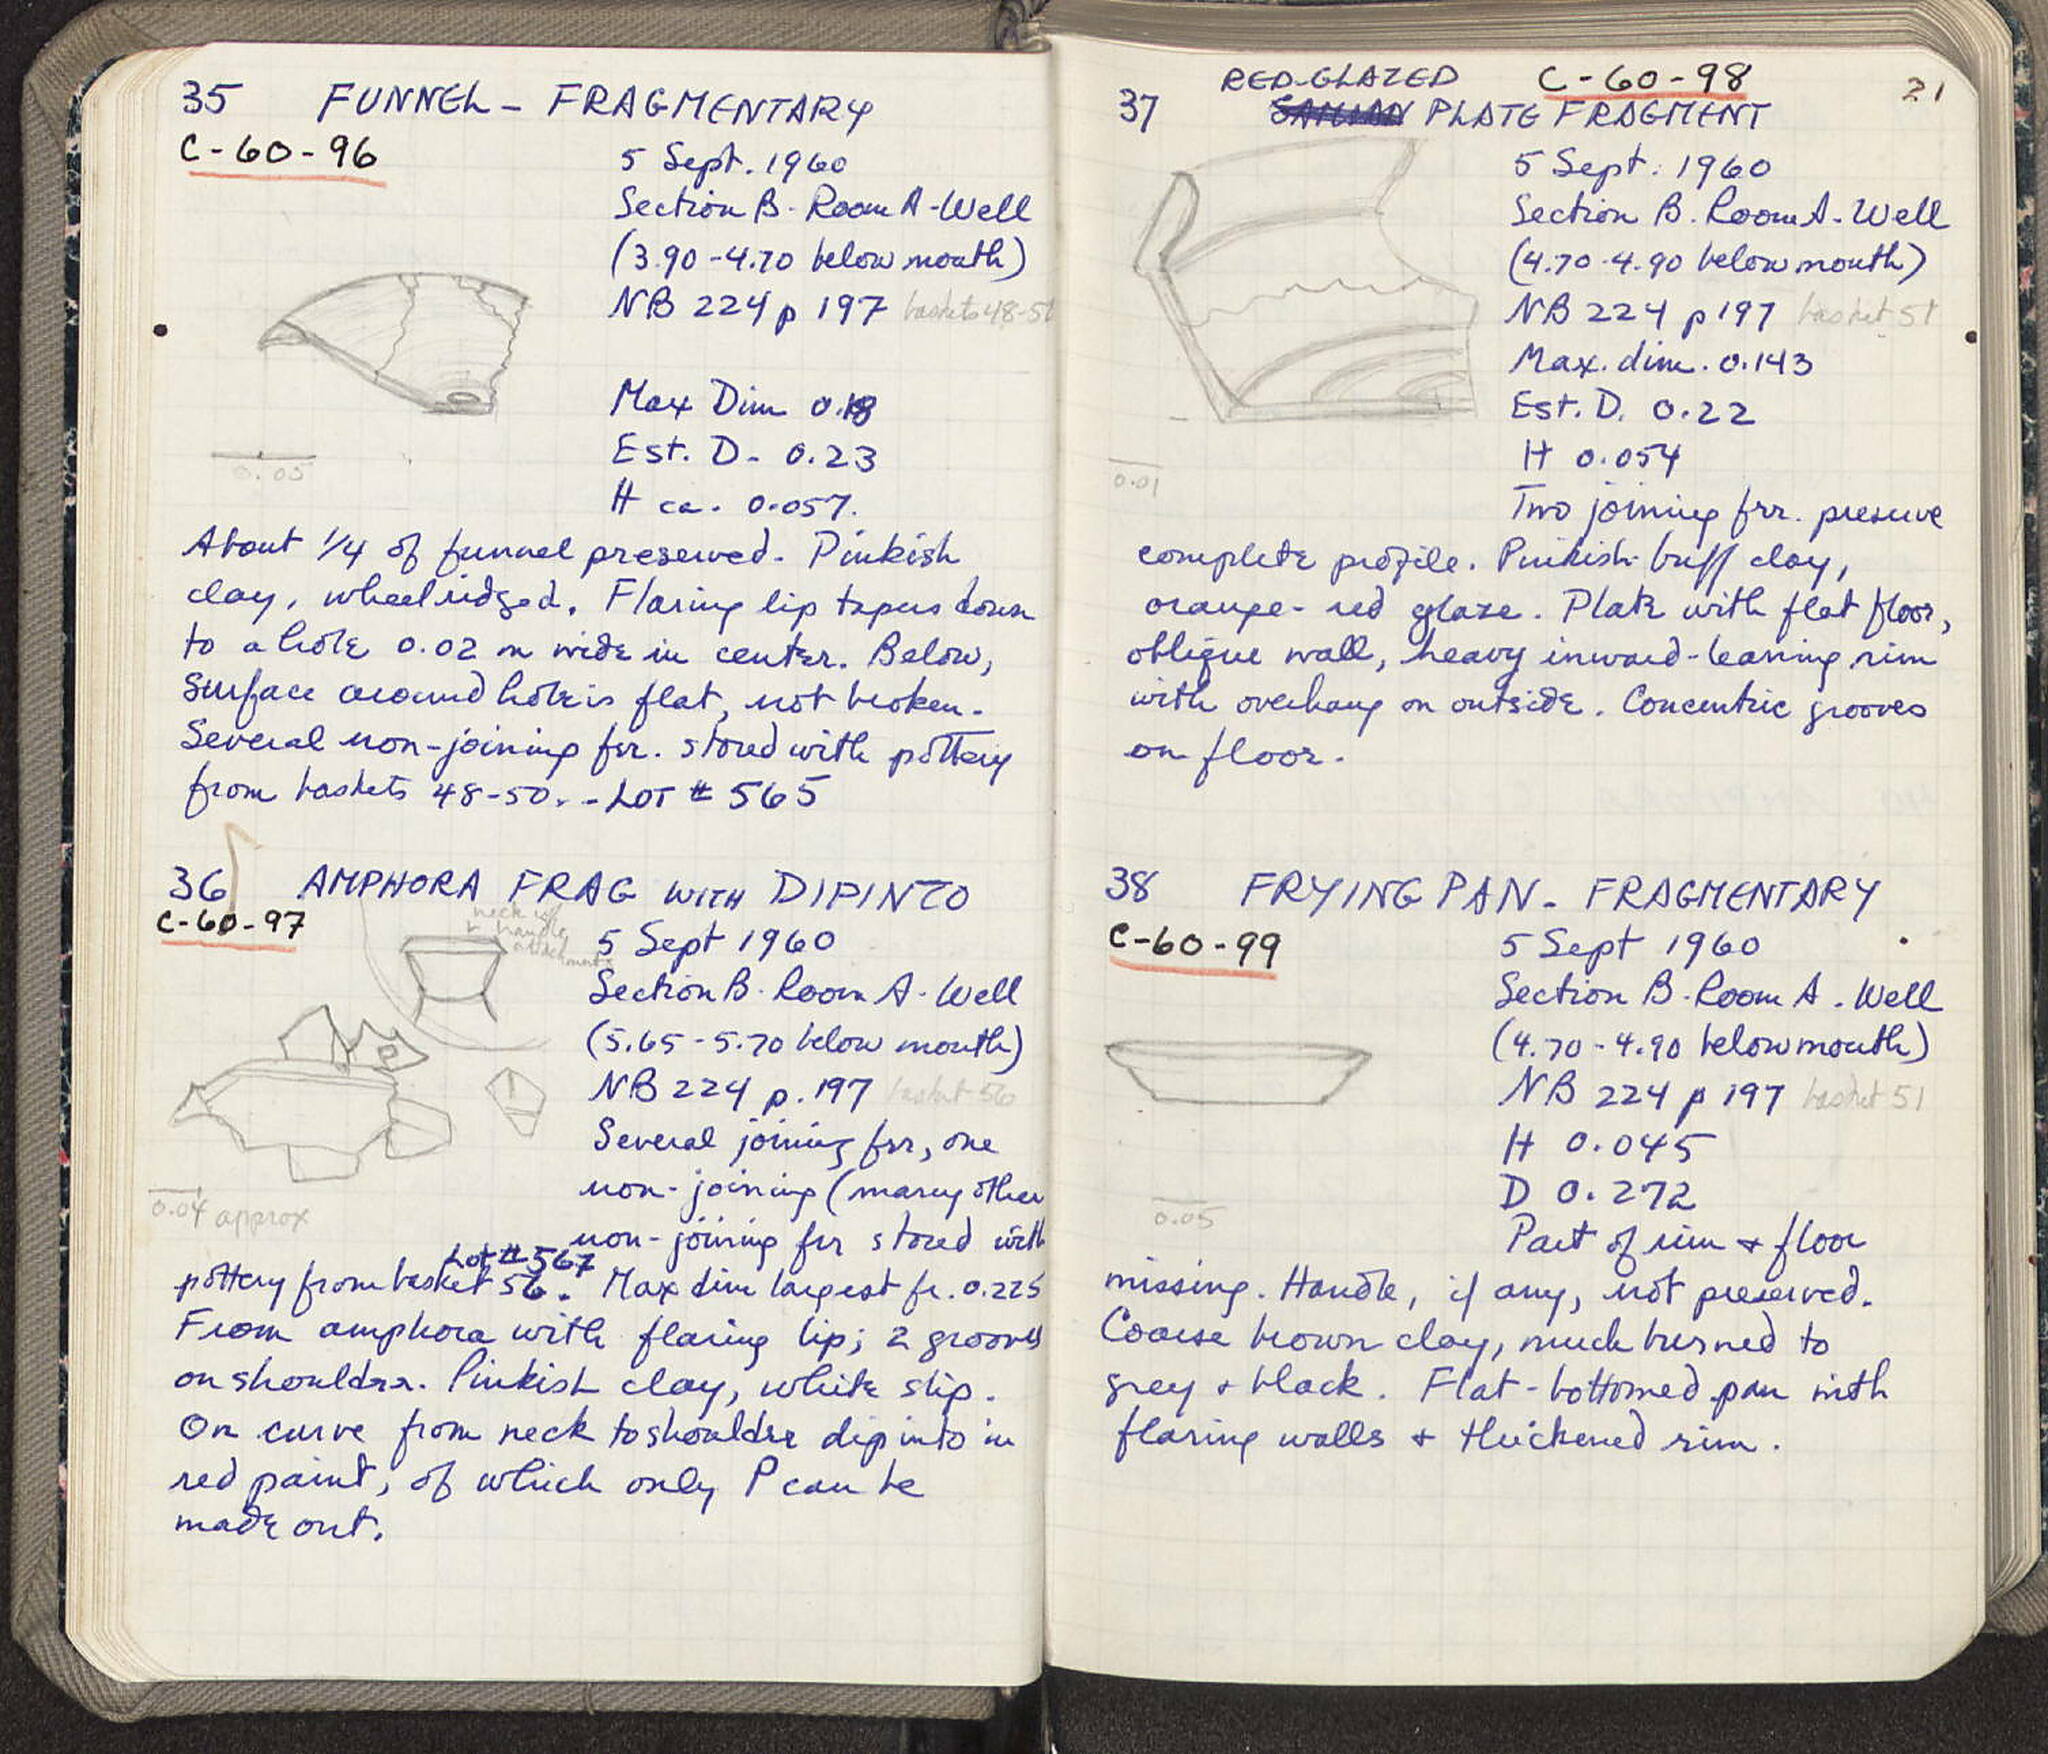 35 FUNNEL - FRAGMENTARY
C-60-96
5 Sept. 1960
Section B. Room A - Well
(3.90-4.70 below mouth)
NB 224 p 197 baskets 48-51
Max Dim 0.18
Est. D. 0.23
H ca. 0.057.
0.05
About 1/4 of funnel preserved. Pinkish
clay, wheelridged. Flaring lip tapers down
to a hole 0.02 m wide in center. Below,
surface around hole is flat, not broken.
Several non-joining frr. stored with pottery
from baskets 48-50. - LOT # 565
36 AMPHORA FRAG WITH DIPINTO
C-60-97
neck w/
handle
attachments
5 Sept 1960
Section B. Room A. Well
(5.65-5.70 below mouth)
NB 224 p. 197 basket 56
0.04 approx
Several joining frr, one
non-joining (many other
non-joining frr stored with
Lot # 567
pottery from basket 56. Max dim largest fr. 0.225
From amphora with flaring lip; 2 grooves
on shoulder. Pinkish clay, white slip.
On curve from neck to shoulder dipinto in
red paint, of which only P can be
made out.
21
RED-GLAZED C-60-98
37 PLATE FRAGMENT
5 Sept. 1960
Section B. Room A. Well
(4.70-4.90 below mouth)
NB 224 p 197 basket 51
Max. dim. 0.143
Est. D. 0.22
H 0.054
0.01
Two joining frr. preserve
complete profile. Pinkish-buff clay,
orange-red glaze. Plate with flat floor,
oblique wall, heavy inward-leaning rim
with overhang on outside. Concentric grooves
on floor.
38 FRYING PAN - FRAGMENTARY
C-60-99
5 Sept 1960
Section B. Room A. Well
(4.70-4.90 below mouth)
NB 224 p 197 basket 51
H 0.045
D 0.272
0.05
Part of rim + floor
missing. Handle, if any, not preserved.
Coarse brown clay, much burned to
grey + black. Flat-bottomed pan with
flaring walls + thickened rim.